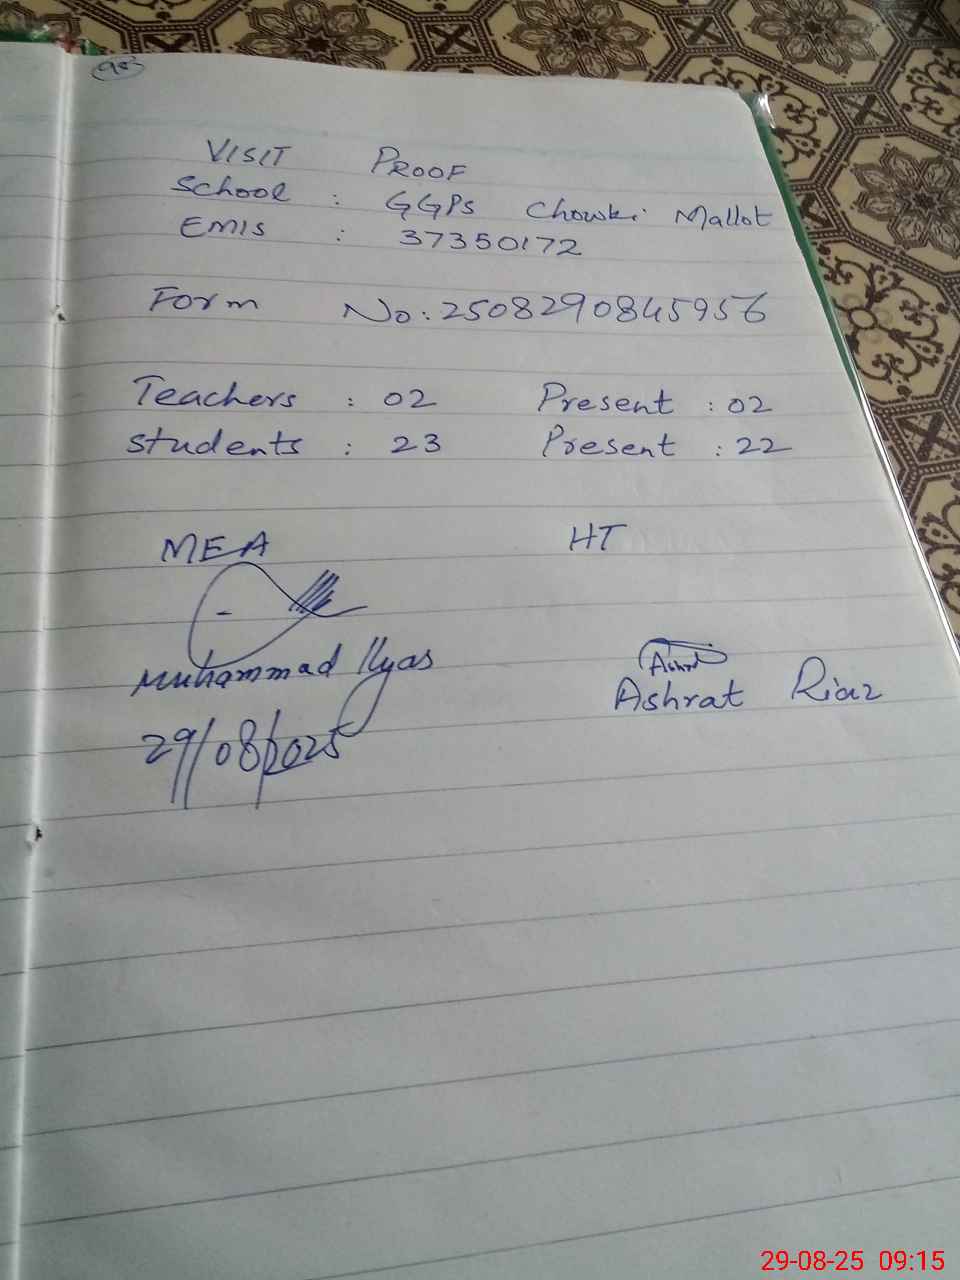 VISIT PROOF
School : GGPS Chowki Mallot
EMIS : 37350172
Form No: 2508290845956
Teachers : 02 Present : 02
Students : 23 Present : 22
MEA HT
Muhammad Ilyas
Ashrat Riaz
29/08/2025
29-08-25 09:15